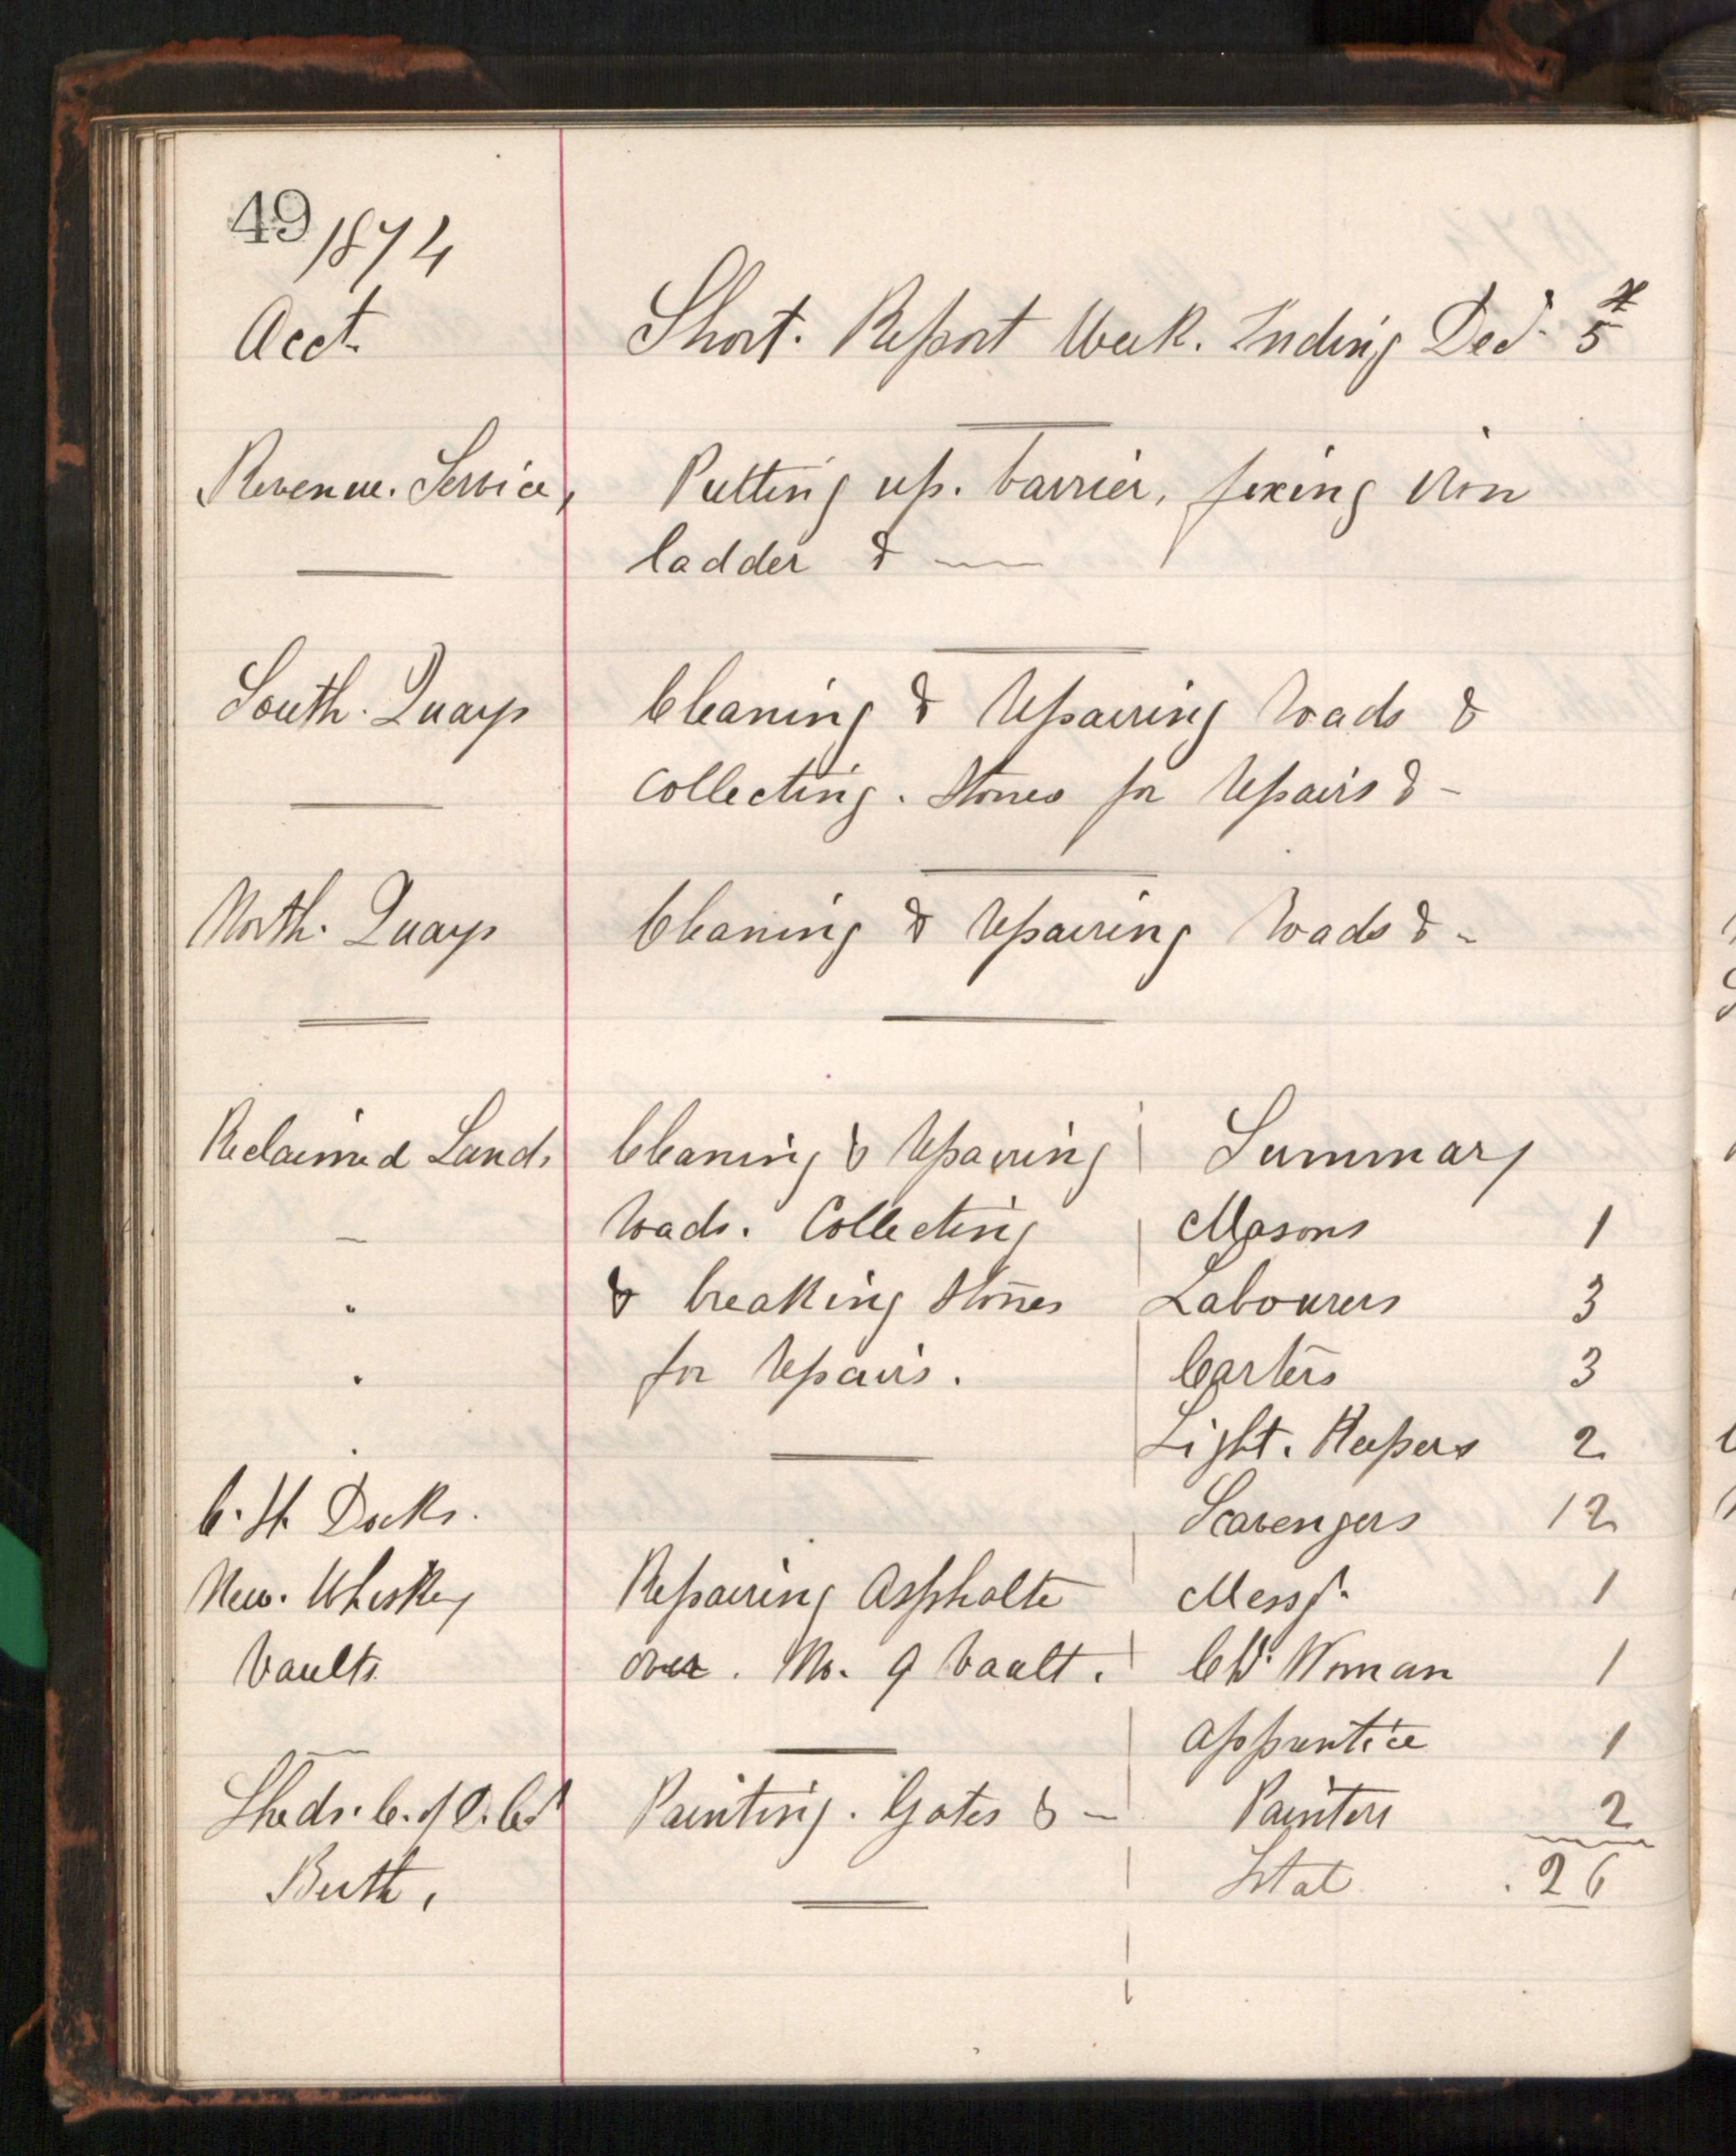 49 1874
Acct. Short. Report Week. Ending Decr. 5th
Revenue. Service, Putting up. barrier, fixing iron
ladder &
South. Quays Cleaning & repairing roads &
Collecting. stones for repairs & -
North. Quays Cleaning & repairing roads & -
Reclaimed Land, Cleaning & repairing Summary
roads. Collecting Masons 1
& breaking stones Labourers 3
for repairs. Carters 3
Light. Keepers 2
C. H. Docks. Scavengers 12
New. Whiskey Repairing Asphalte Messr. 1
Vaults over. No. 9 Vault. Woman 1
Apprentice 1
Sheds. C. of D. Painting. Gates & - Painters 2
Berth, Total 26